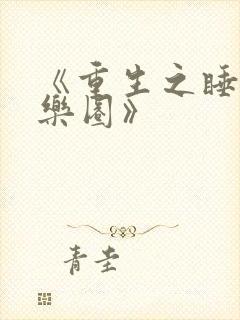 《重生之睡
樂園》
青圭